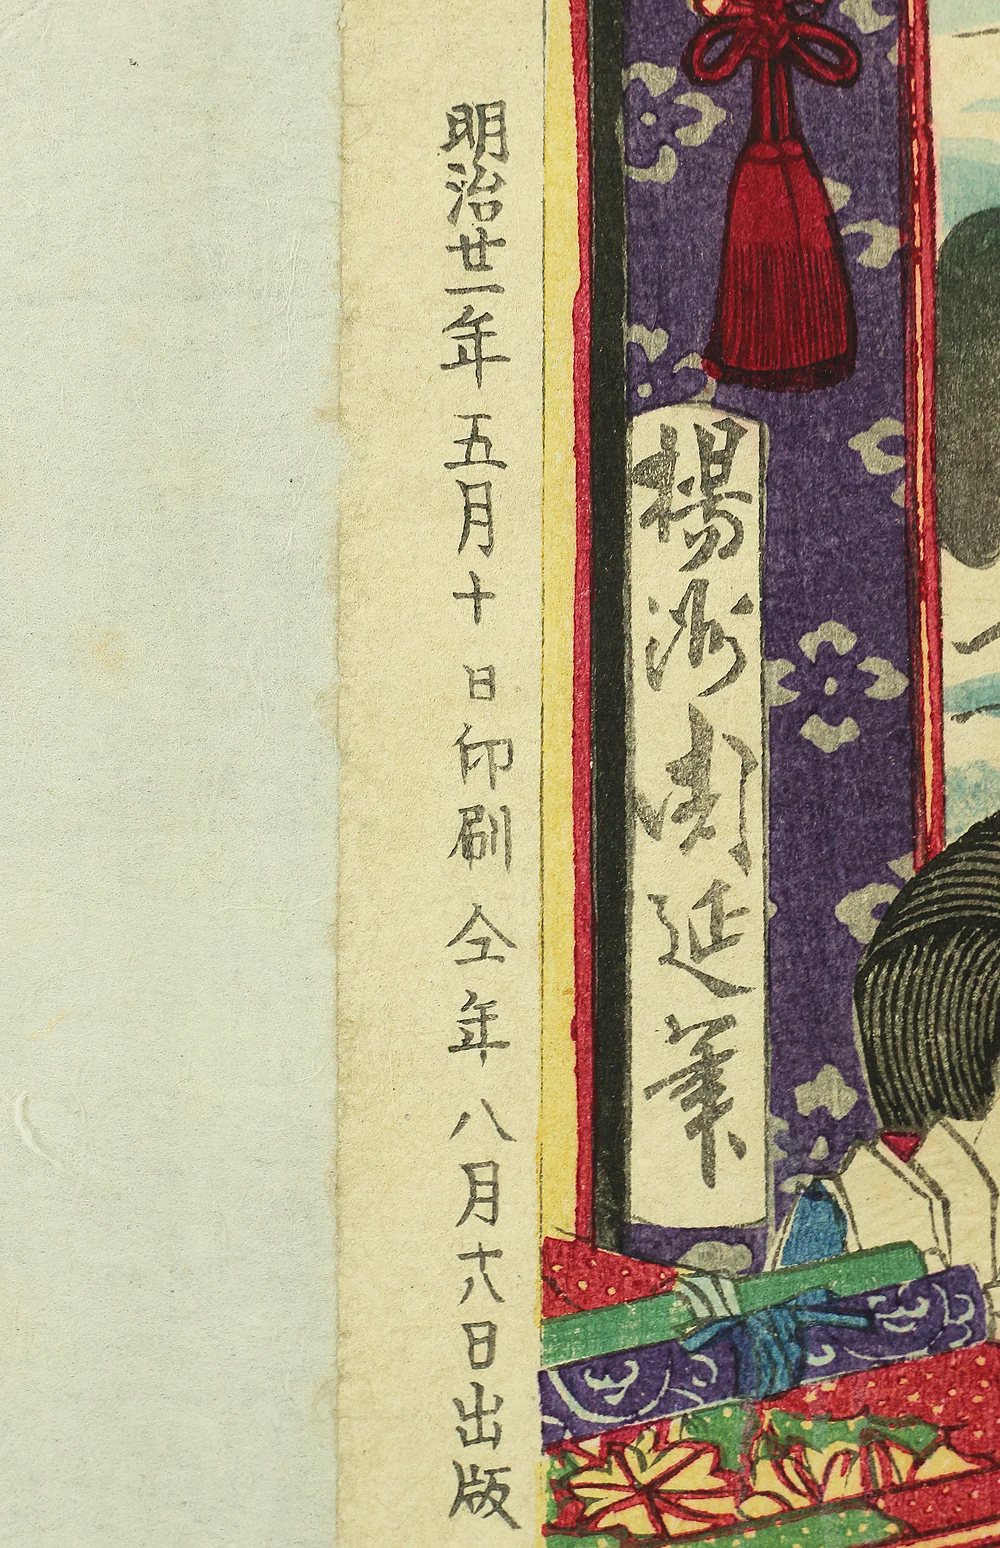 楊洲周延筆
明治廿一年五月十日印刷仝年八月六日出版